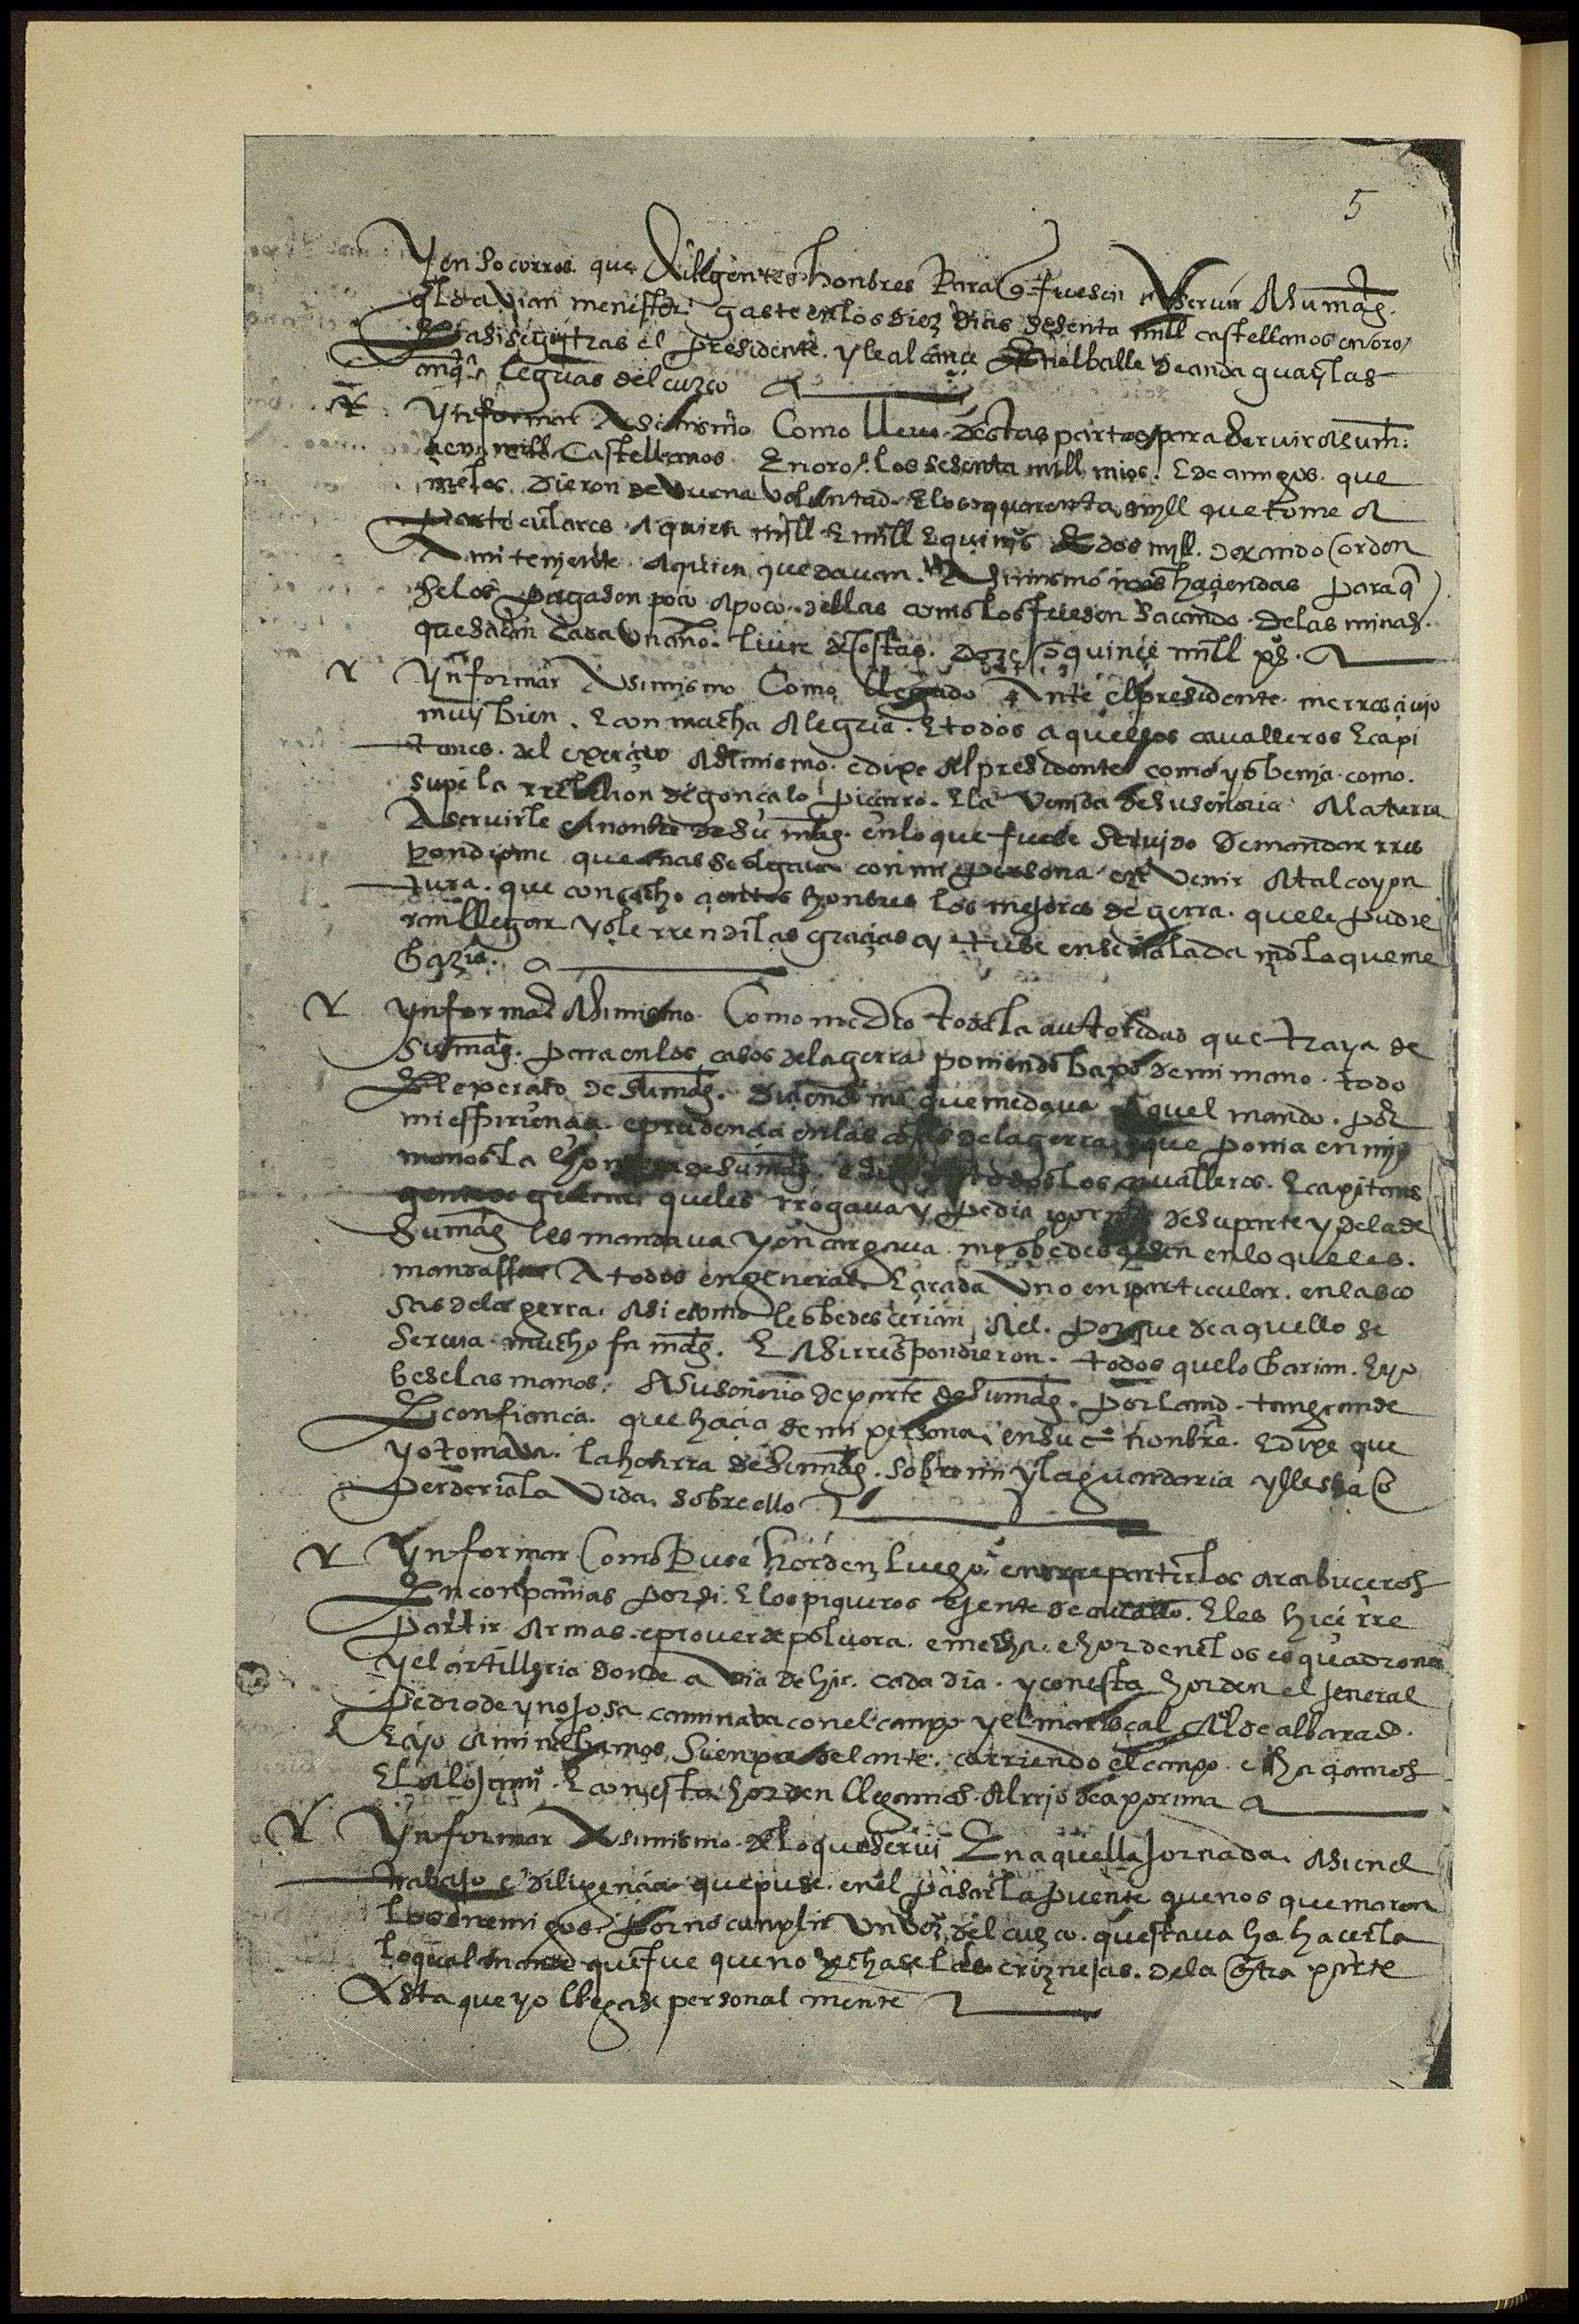 5
Y en socorros que di a gentes honbres para q fuesen a servir a su mag.
q lo avian menester gaste en los diez dias sesenta mill castellanos en oro
E asi segui tras el presidente y le alcance en el valle de andaguaylas
leguas del cuzco
Ynformar asimismo como lleve destas partes para servir a su m.
cien mill castellanos en oro los sesenta mill mios e de amigos que
me los dieron de buena voluntad e los quarenta myll que tome a
particulares a quien mill e mill e quinios e dos myll dexando orden
a mi tenyente a quien quedavan asimismo mis haçiendas para q
se los pagasen poco a poco dellas como los fuesen sacando de las minas
que davan cada un año livre de costas doze o quinçe mill ps.
Ynformar asimismo como llegado ante el presidente me rresçivyo
muy bien e con mucha alegria e todos aquellos cavalleros e capi
tanes del exerçito asimismo e dixe al presidente como yo benya como
supe la rrebelion de gonçalo piçarro e la venida de su señoria a la tierra
a servirle en nonbre de su mag. en lo que fuese servido de mandar rres
pondiome que mas se olgava con mi persona en venir a tal coyun
tura que con ocho çientos honbres los mejores de gerra que le pudie
ran llegar yo le rrendi las graçias y tube en señalada md la que me
hazia
Ynformar asimismo como me dio toda la autoridad que traya de
su mag. para en los casos de la gerra poniendo baxo de mi mano todo
el exerçito de su mag. diçiendome que me dava aquel mando por
mi espiriençia e prudençia en las cosas de la gerra e que ponia en mis
manos la honrra de su mag. e dixo a todos los cavalleros e capitanes
gente de guerra que les rrogava y pedia por md de su parte y de la de
su mag les mandava y encargava me obedesçiesen en lo que les
mandasse a todos en general e a cada uno en particular en las co
sas de la gerra asi como le obedesçerian a el porque de aquello se
servia mucho su mag. E asi rrespondieron todos que lo harian e yo
bese las manos a su señoria de parte de su mag. por la md tan grande
E confiança que haçia de mi persona en su nonbre e dixe que
yo tomava la honrra de su mag. sobre mi y la guardaria y llevaria o
perderia la vida sobre ello
Ynformar como puse horden luego en rrepartir los arcabuçeros
En conpañias por si e los piqueros e jente de cavallo e les hiçe rre
partir armas e prover de polvora e mecha e hordene los esquadrones
y el artilleria donde avia de hir cada dia y con esta horden el jeneral
pedro de ynojosa caminava con el campo y el mariscal al de albarado
E yo caminabamos sienpre delante corriendo el campo e haçiamos
el aloxami e con esta horden llegamos al rrio de aporima
Ynformar asimismo de lo que servi en aquella jornada asi en el
trabajo e diligençia que puse en el pasar la puente que nos quemaron
los enemigos por no cunplir un vo del cuzco questava ha hacerla
lo qual mande que fue que no hechase las criznejas de la otra parte
asta que yo llegase personalmente